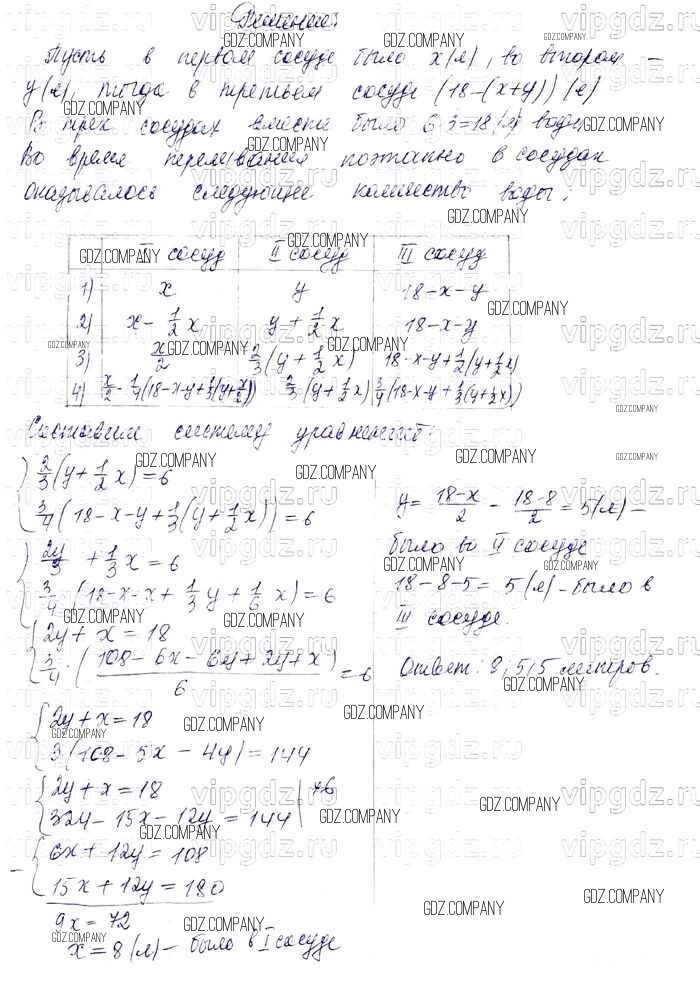 Решение:
Пусть в первом сосуде было x (л), во втором –
y (л), тогда в третьем сосуде (18-(x+y)) (л)
В трёх сосудах вместе было 6·3=18 (л) воды
Во время переливания поэтапно в сосудах
оказывалось следующее количество воды:
I сосуд II сосуд III сосуд
1) x y 18-x-y
2) x - 1/2 x y + 1/2 x 18-x-y
3) x/2 2/3 (y + 1/2 x) 18-x-y+1/2(y+1/2x)
4) x/2 - 1/4(18-x-y+1/3(y+x/2)) 2/3 (y+1/2x) 3/4(18-x-y+1/3(y+1/2x))
Составим систему уравнений:
2/3 (y + 1/2 x) = 6
3/4 (18-x-y+1/3(y+1/2x)) = 6
2y/3 + 1/3 x = 6
3/4 (18-x-x+1/3 y + 1/6 x) = 6
2y + x = 18
3/4 · (108-6x-6y+2y+x)/6 = 6
2y + x = 18
3(108-5x-4y) = 144
2y + x = 18 | ·6
324-15x-12y = 144
- 6x + 12y = 108
15x + 12y = 180
9x = 72
x = 8 (л) – было в I сосуде
y = (18-x)/2 - (18-8)/2 = 5 (л) –
было во II сосуде
18-8-5 = 5 (л) – было в
III сосуде.
Ответ: 8, 5, 5 литров.
GDZ.COMPANY
vipgdz.ru